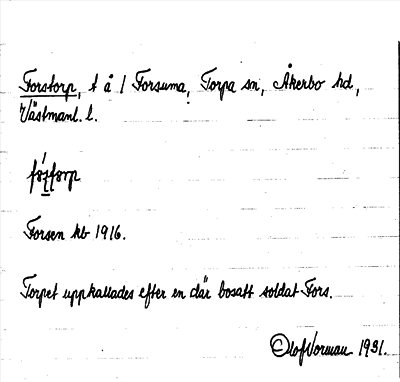 Forstorp, t å 1 Forsuma, Torpa sn, Åkerbo hd,
Västmanl. l.
Forsen kb 1916.
Torpet uppkallades efter en där bosatt soldat Fors.
Olof Norman 1931.